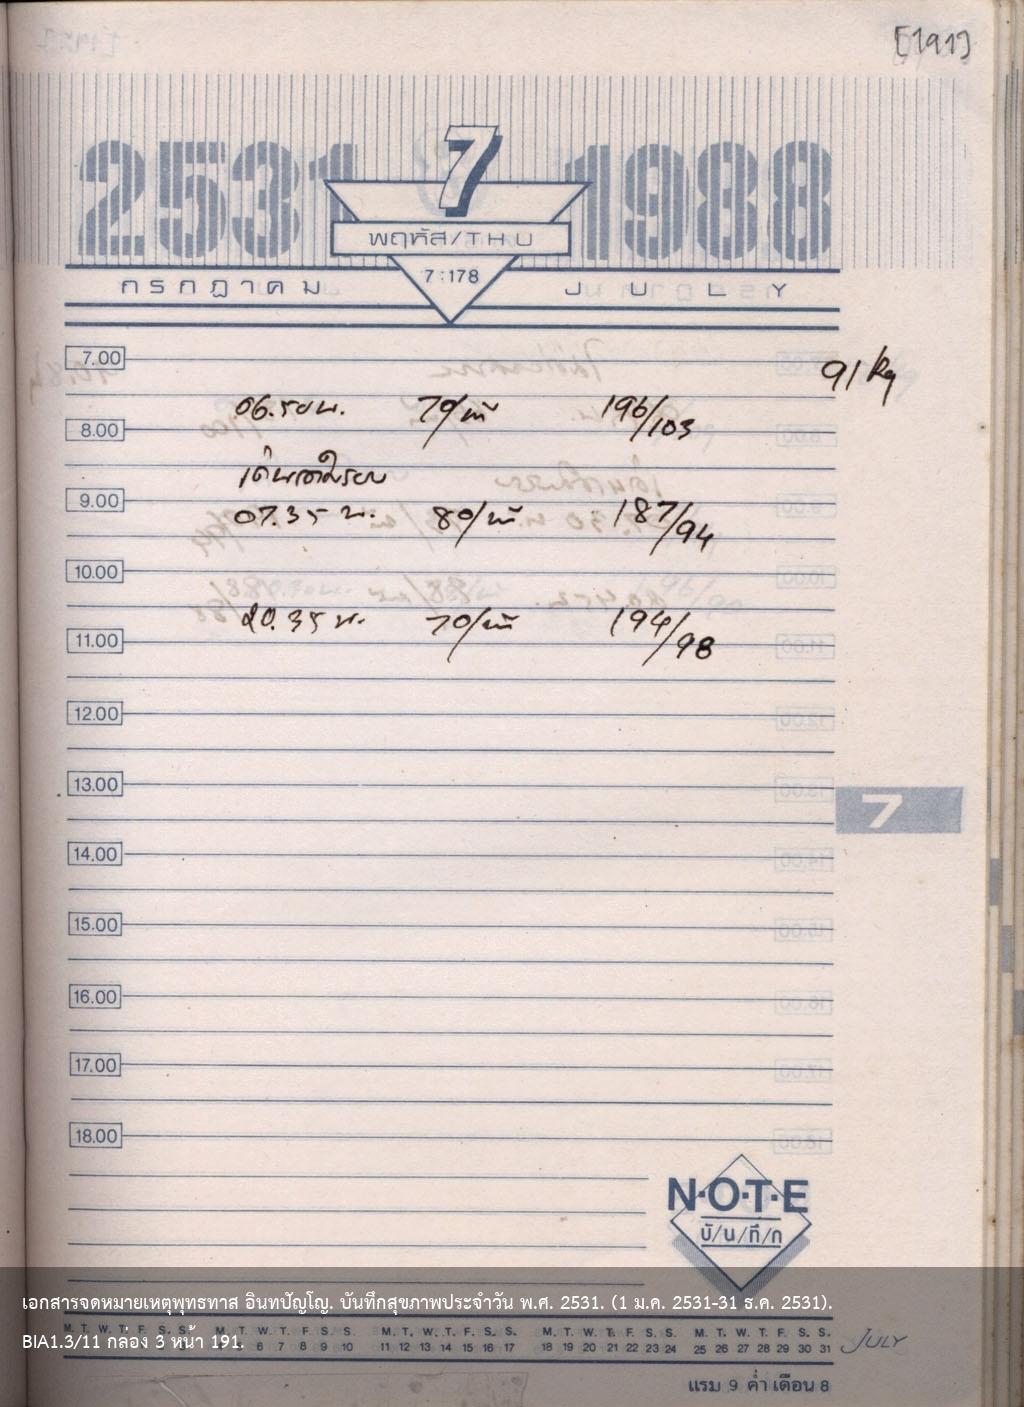 [191]
2531 7 1988
พฤหัส/THU
7:178
กรกฎาคม JULY
7.00
91 kg
06.50 น. 70/นาที 196/103
8.00
9.00
07.35 น. 80/นาที 187/94
10.00
20.35 น. 70/นาที 194/98
11.00
12.00
13.00
7
14.00
15.00
16.00
17.00
18.00
N·O·T·E
บั/น/ทึ/ก
เอกสารจดหมายเหตุพุทธทาส อินทปัญโญ. บันทึกสุขภาพประจำวัน พ.ศ. 2531. (1 ม.ค. 2531-31 ธ.ค. 2531).
M. T. W. T. F. S. S. M. T. W. T. F. S. S. M. T. W. T. F. S. S. M. T. W. T. F. S. S. M. T. W. T. F. S. S.
BIA1.3/11 กล่อง 3 หน้า 191.
6 7 8 9 10 11 12 13 14 15 16 17 18 19 20 21 22 23 24 25 26 27 28 29 30 31 JULY
แรม 9 ค่ำ เดือน 8